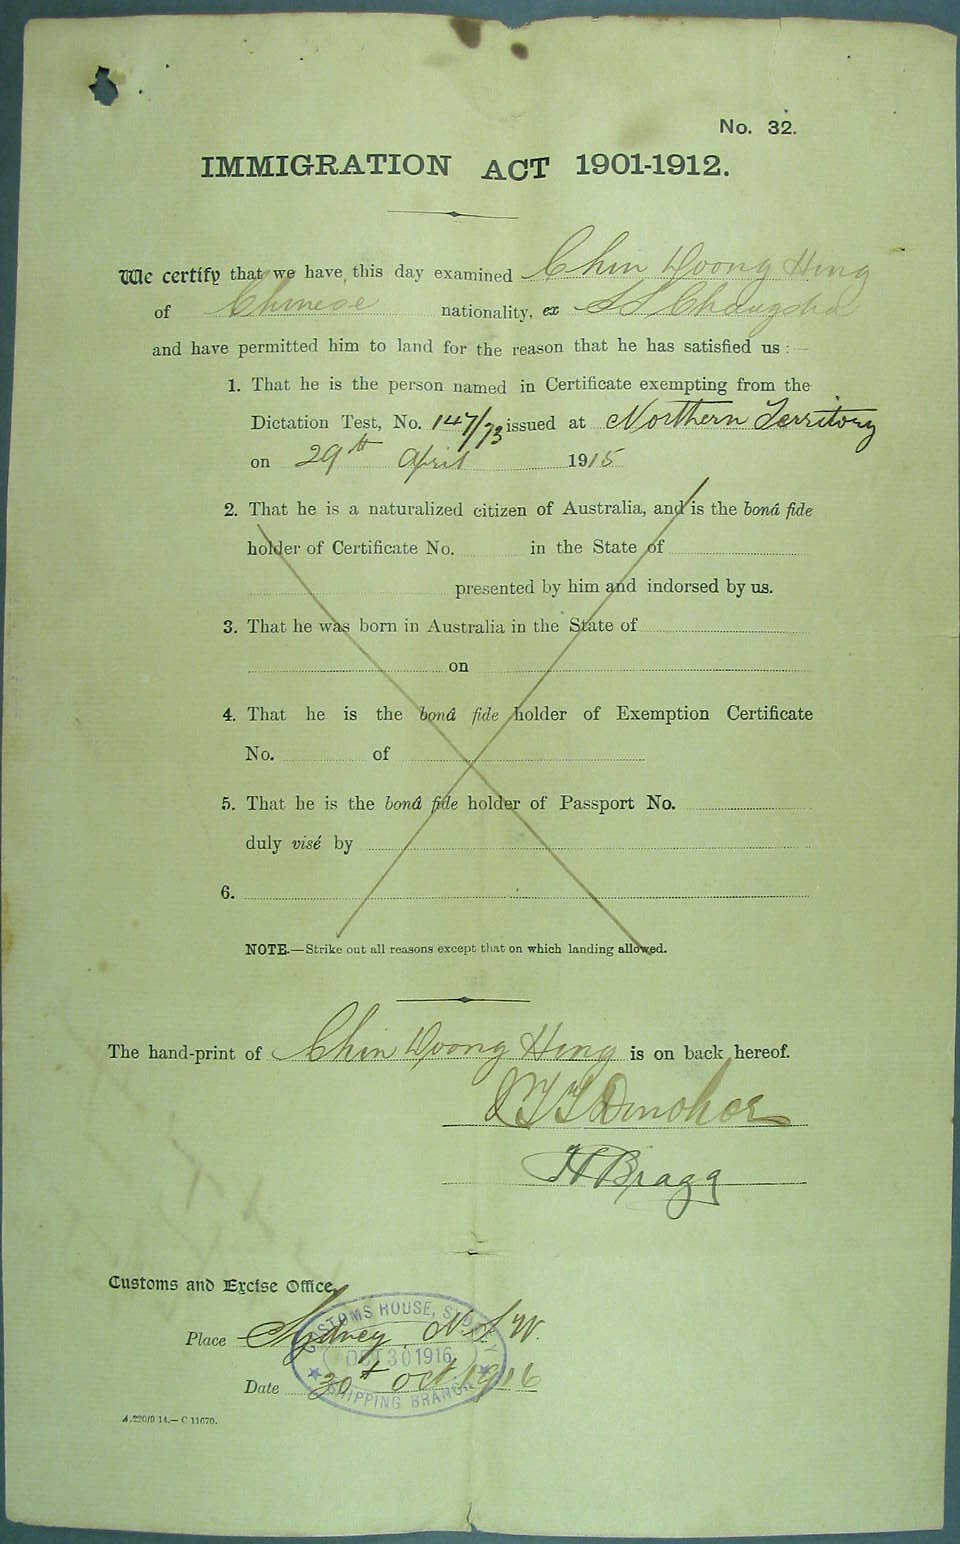 No. 32.
IMMIGRATION ACT 1901-1912.
We certify that we have this day examined Chin Woong Hing
of Chinese nationality, ex SS Changsha
and have permitted him to land for the reason that he has satisfied us :—
1. That he is the person named in Certificate exempting from the
Dictation Test, No. 147/73 issued at Northern Territory
on 29th April 1915
2. That he is a naturalized citizen of Australia, and is the bonâ fide
holder of Certificate No. in the State of
presented by him and indorsed by us.
3. That he was born in Australia in the State of
on
4. That he is the bonâ fide holder of Exemption Certificate
No. of
5. That he is the bonâ fide holder of Passport No.
duly visé by
6.
NOTE.—Strike out all reasons except that on which landing allowed.
The hand-print of Chin Woong Hing is on back hereof.
J T T Donohoe
H Bragg
Customs and Excise Office,
Place Sydney N.S.W.
Date 30th Oct 1916
CUSTOMS HOUSE, SYDNEY
OCT 30 1916
SHIPPING BRANCH
A.220/9.14.—C.11670.